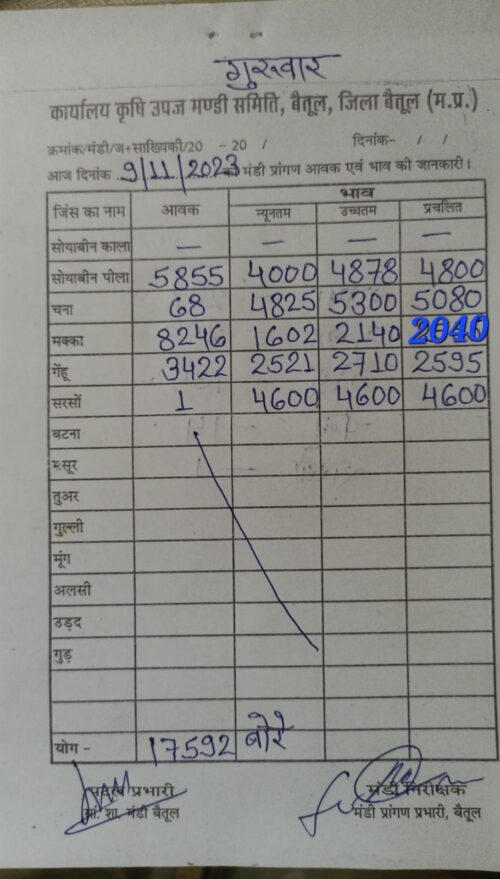 गुरुवार
कार्यालय कृषि उपज मण्डी समिति, बैतूल, जिला बैतूल (म.प्र.)
क्रमांक/मंडी/ज+साख्यिकी/20 - 20 / दिनांक- / /
आज दिनांक 9/11/2023 को मंडी प्रांगण आवक एवं भाव की जानकारी।
जिंस का नाम आवक भाव
न्यूनतम उच्चतम प्रचलित
सोयाबीन काला — — — —
सोयाबीन पीला 5855 4000 4878 4800
चना 68 4825 5300 5080
मक्का 8246 1602 2140 2040
गेंहू 3422 2521 2710 2595
सरसों 1 4600 4600 4600
बटना
मसूर
तुअर
गुल्ली
मूंग
अलसी
उड़द
गुड़
योग - 17592 बोरे
प्रभारी मंडी निरीक्षक
सां. शा. मंडी बैतूल मंडी प्रांगण प्रभारी, बैतूल